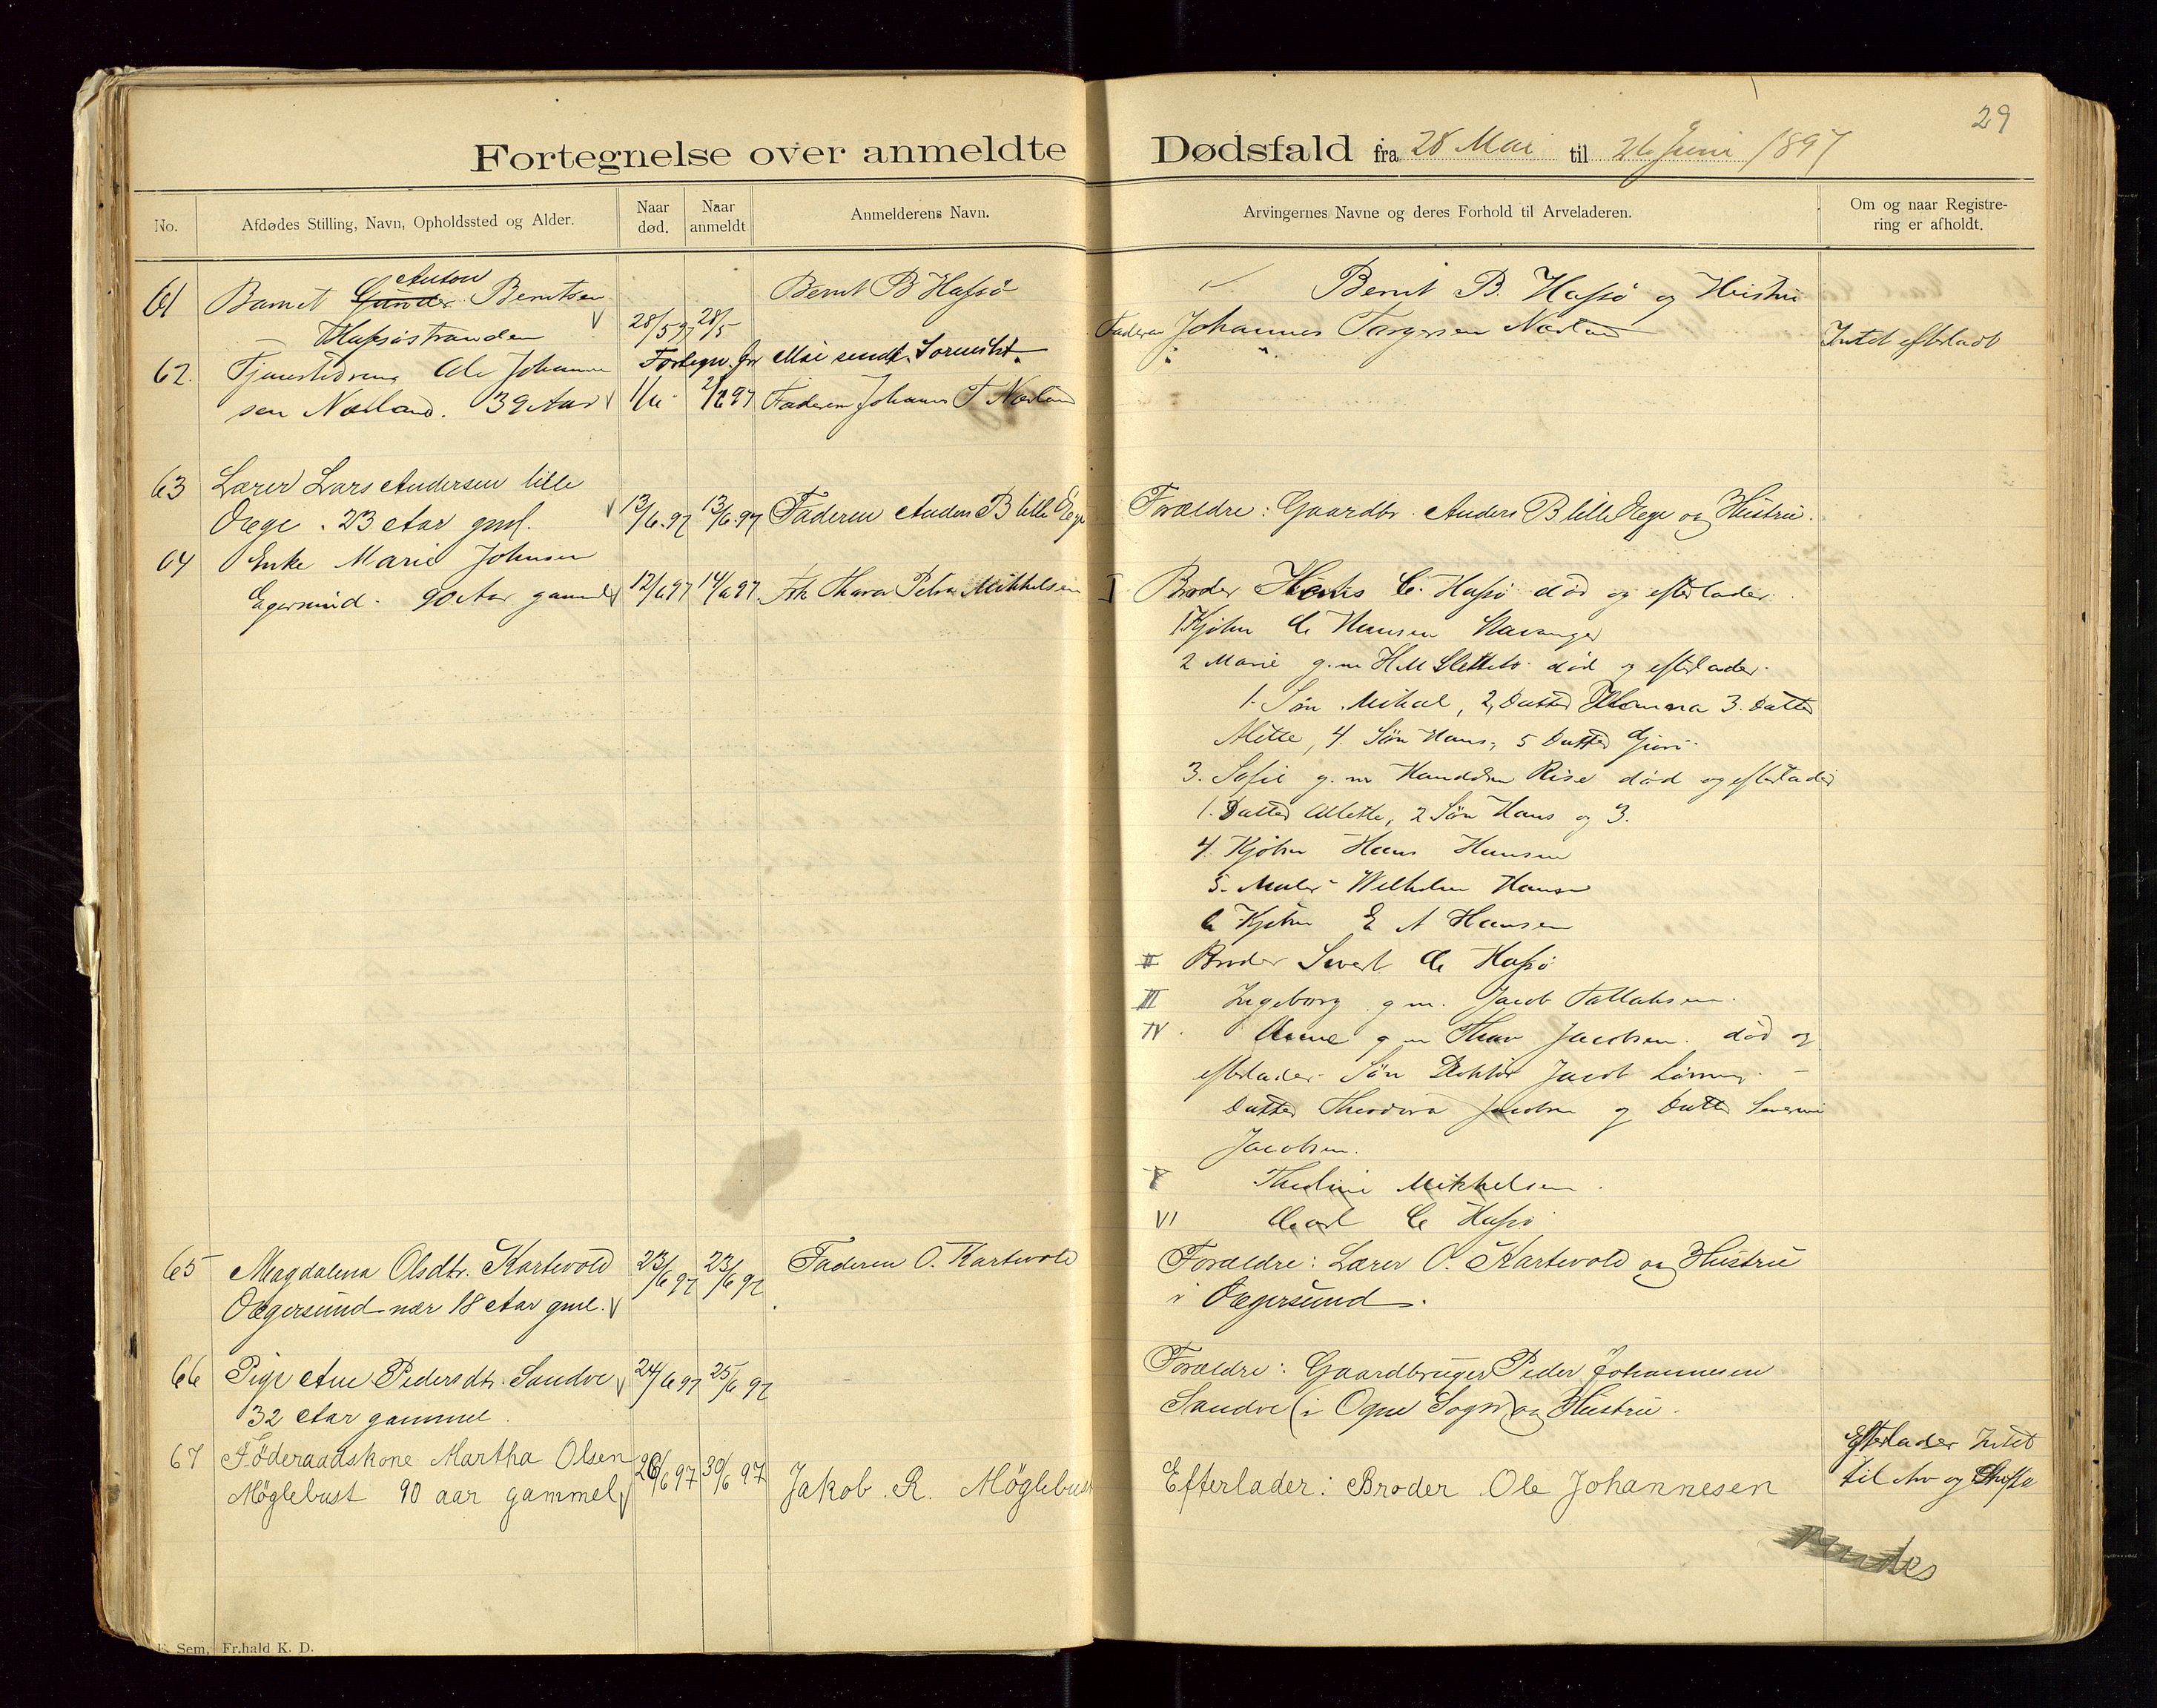 29
Fortegnelse over anmeldte Dødsfald fra 28 Mai til 26 Juni 1897
No. Afdødes Stilling, Navn, Opholdssted og Alder. Naar død. Naar anmeldt Anmelderens Navn. Arvingernes Navne og deres Forhold til Arveladeren. Om og naar Registrering er afholdt.
61 Barnet Gunder Anton Berntsen Bernt B Hafsø Bernt B. Hafsø og Hustru
Hafsøstranden 28/5 97 28/5
Faderen Johannes Torgersen Næsland Intet efterladt
Fortegn. for Mai sendt Sorenskr.
62. Tjenestedreng Ole Johann
sen Næsland. 32 Aar 1/6 2/6 97 Faderen Johannes T Næsland
63 Lærer Lars Andersen lille
Øege. 23 Aar gml. 13/6.97 13/6.97 Faderen Anders B lille Øege Forældre: Gaardbr. Anders B lille Øege og Hustru.
64 Enke Marie Johnsen
Egersund. 90 Aar gammel 12/6 97 14/6 97 Frk Thava Petra Mikkelsen I Broder Hans C. Hafsø død og efterlader
1 Kjøbm C. Hansen Stavanger
2 Marie g.m H M Slettebø død og efterlader
1. Søn Mikal, 2, Datter Hanna 3. Datter
Mette, 4. Søn Hans, 5 Datter Guri
3. Sofie g. m Rise død og efterlader
1. Datter Mette, 2 Søn Hans og 3.
4. Kjøbm Hans Hansen
5. Maler Wilhelm Hansen
6 Kjøbm E A Hansen
II Broder Sivert C. Hafsø
III Ingeborg g m. Jacob Tollaksen
IV Anne g m Thor Jacobsen. død og
efterlader Søn Doktor Jacob
Datter Theodora Jacobsen og Datter Severine
Jacobsen.
V Theoline Mikkelsen.
VI Carl C Hafsø
65 Magdalena Olsdtr. Kartevold 23/6 97 23/6 97 Faderen O. Kartevold Forældre: Lærer O. Kartevold og Hustru
Øegersund nær 18 Aar gml. i Øegersund.
66 Pige Ane Pedersdtr. Sandve 24/6 97 25/6 97 Forældre: Gaardbruger Peder Johannesen
32 Aar gammel. Sandve (i Ogne Sogn) og Hustru.
67 Føderaadskone Martha Olsen Efterlader Intet
Møglebust 90 aar gammel 26/6 97 30/6 97 Jakob R. Møglebust Efterlader: Broder Ole Johannesen til Arv og Skifte
Sem, Fr.hald K. D.